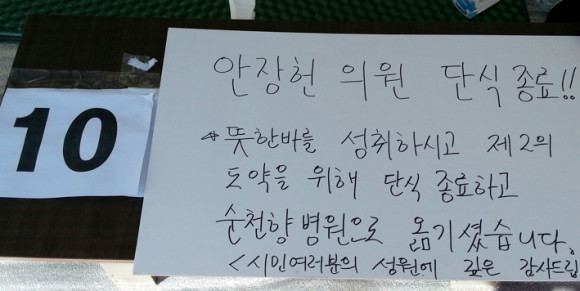 10
안장헌 의원 단식 종료!!
* 뜻한바를 성취하시고 제2의
도약을 위해 단식 종료하고
순천향병원으로 옮기셨습니다.
<시민여러분의 성원에 깊은 감사드립